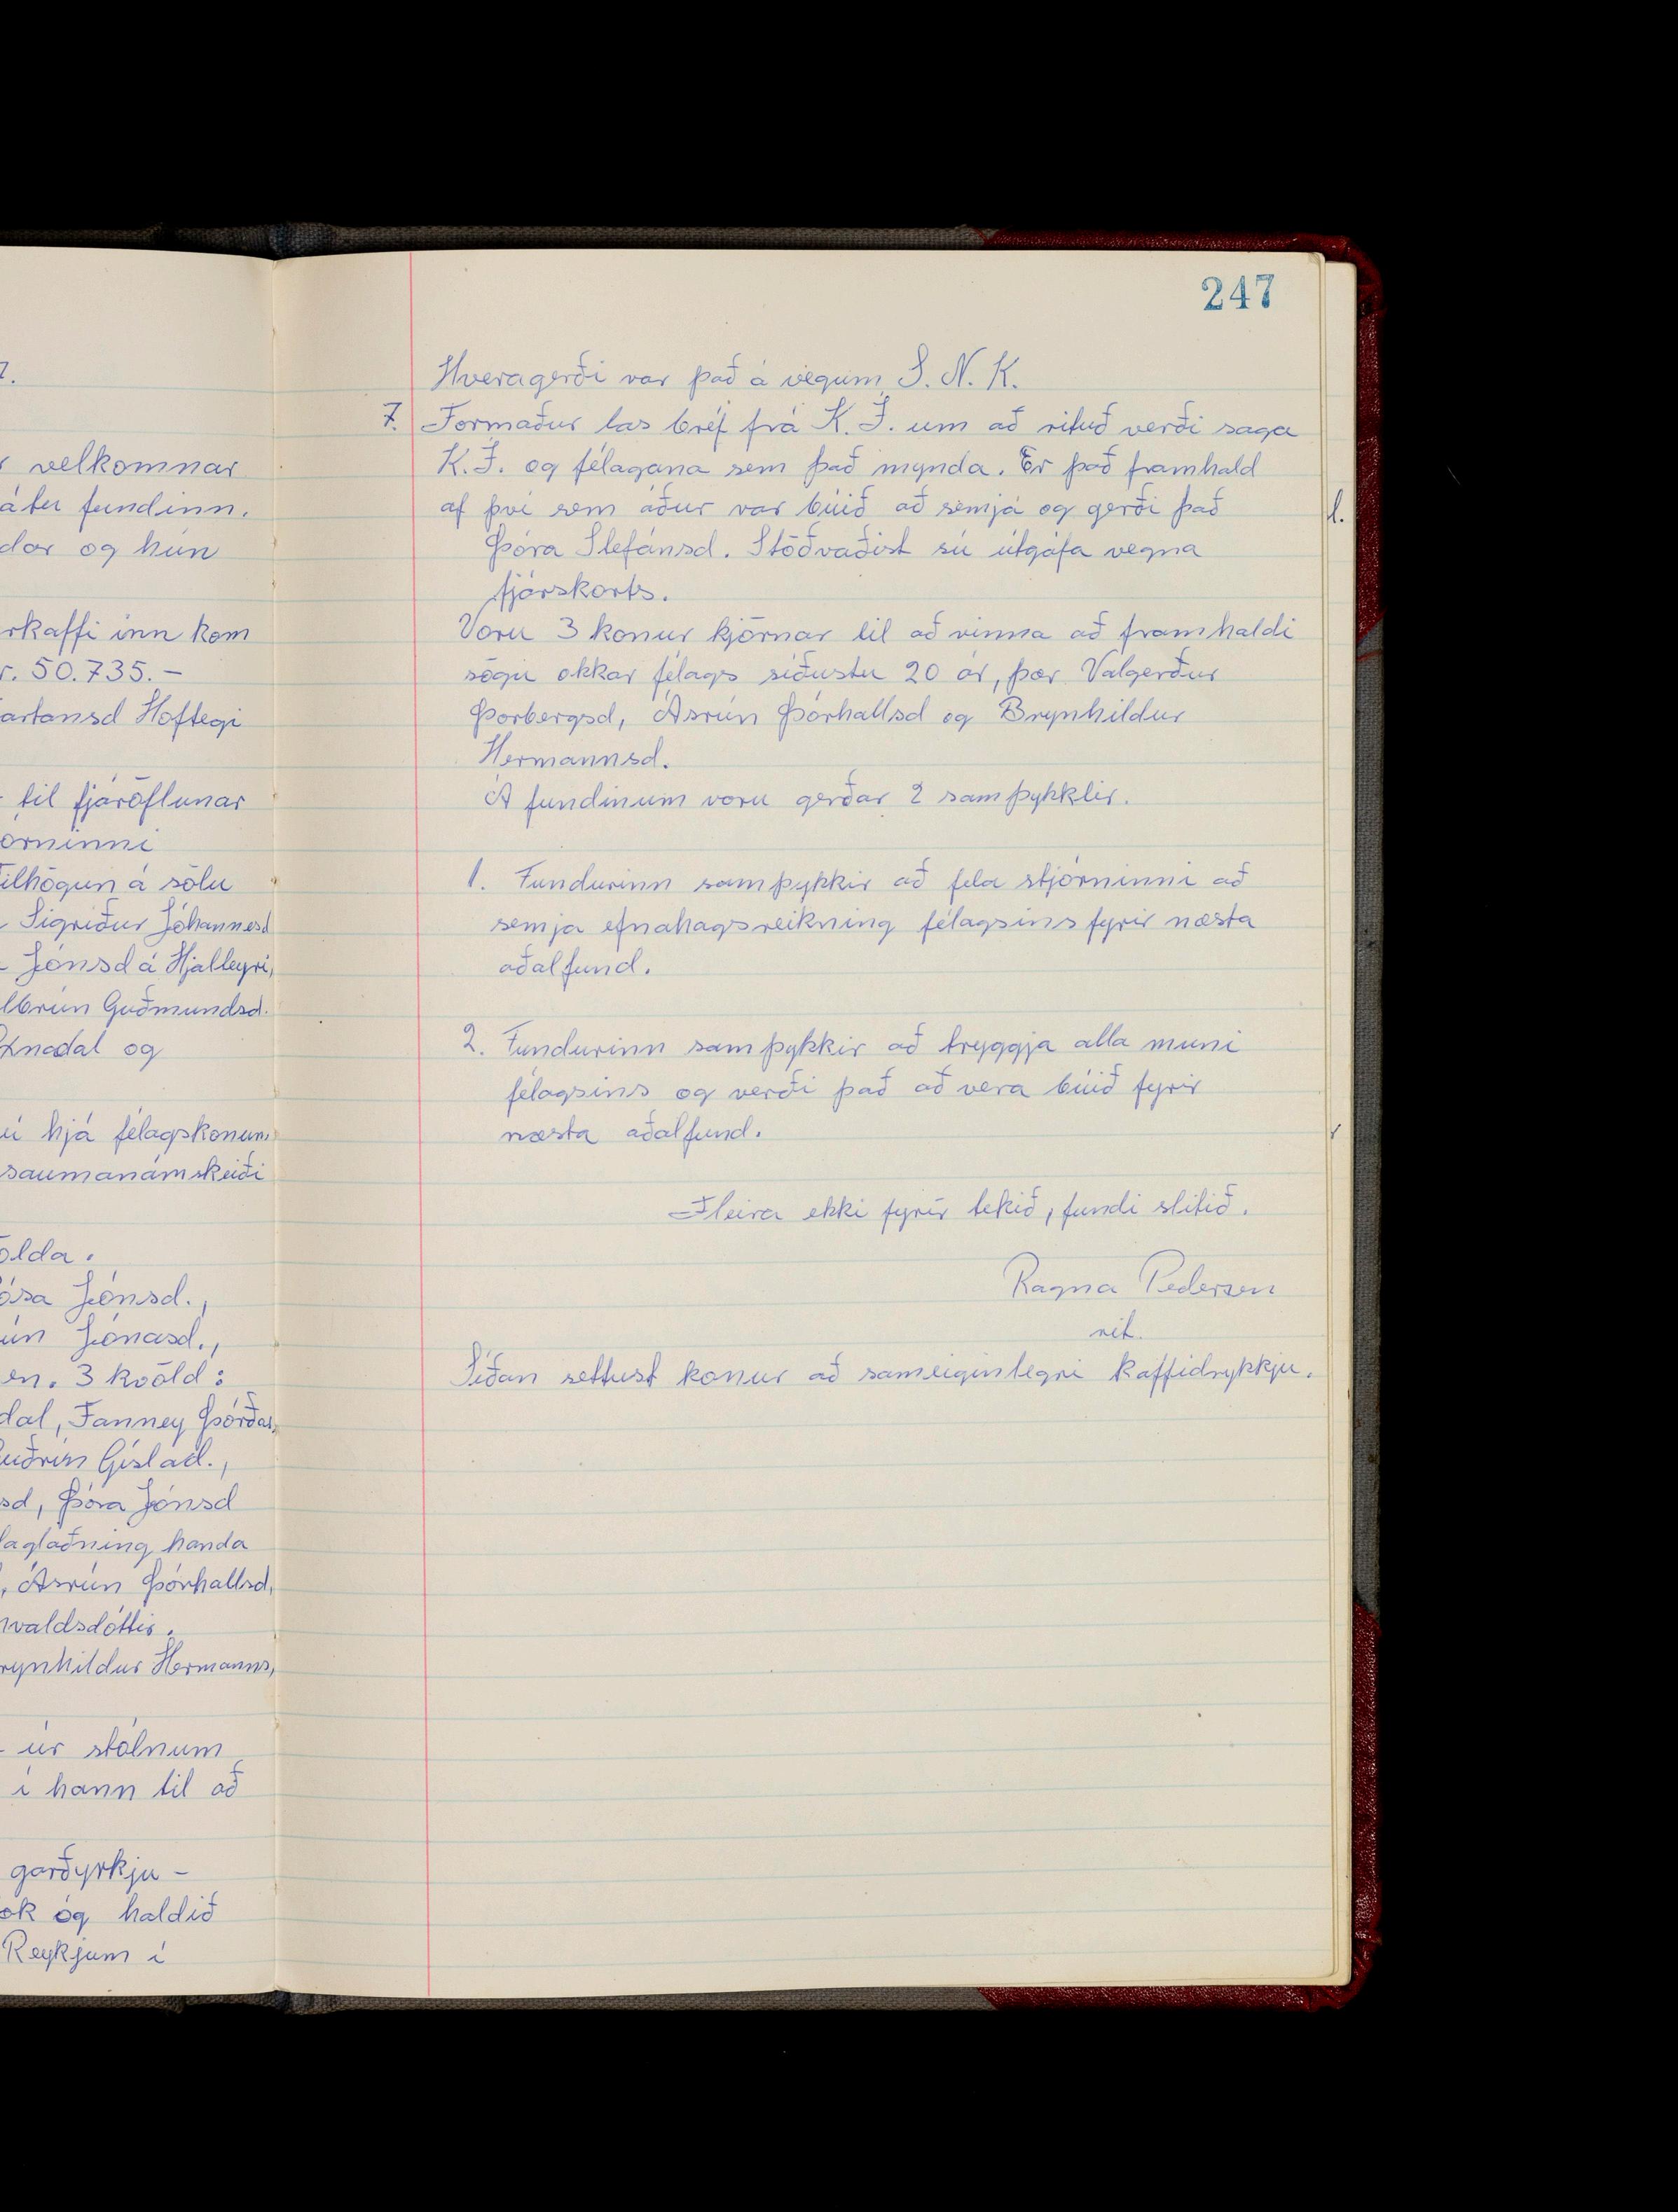 7.
velkomnar
fundinn.
og hún
rkaffi inn kom
r. 50.735.-
artansd Hofteigi
til fjáröflunar
orninni
ilhögun á sölu
Sigríður Jóhannesd
Jónsd á Hjalleyri,
lbrún Guðmundsd.
og
hjá félagskonum
saumanámskeiði
ölda.
ósa Jónsd.,
ún Jónasd.,
en. 3 kvöld:
dal, Fanney Þórðar,
uðrún Gíslad.,
sd, Þóra Jónsd
laglaðning handa
, Ásrún Þórhallsd,
valdsdóttir.
rynhildur Hermanns,
- úr stólnum
í hann til að
garðyrkju -
ók og haldið
Reykjum í
247
Hveragerði var það á vegum S. N. K.
7. Formaður las bréf frá K. Í. um að rituð verði saga
K.Í. og félagana sem það mynda. Er það framhald
af því sem áður var búið að semja og gerði það
Þóra Stefánsd. Stöðvaðist sú útgáfa vegna
fjárskorts.
Voru 3 konur kjörnar til að vinna að framhaldi
sögu okkar félags síðustu 20 ár, þær Valgerður
Þorbergsd, Ásrún Þórhallsd og Brynhildur
Hermannsd.
Á fundinum voru gerðar 2 samþykktir.
1. Fundurinn samþykkir að fela stjórninni að
semja efnahagsreikning félagsins fyrir næsta
aðalfund.
2. Fundurinn samþykkir að tryggja alla muni
félagsins og verði það að vera búið fyrir
næsta aðalfund.
Fleira ekki fyrir tekið, fundi slitið.
Ragna Pedersen
rit.
Síðan settust konur að sameiginlegri kaffidrykkju.